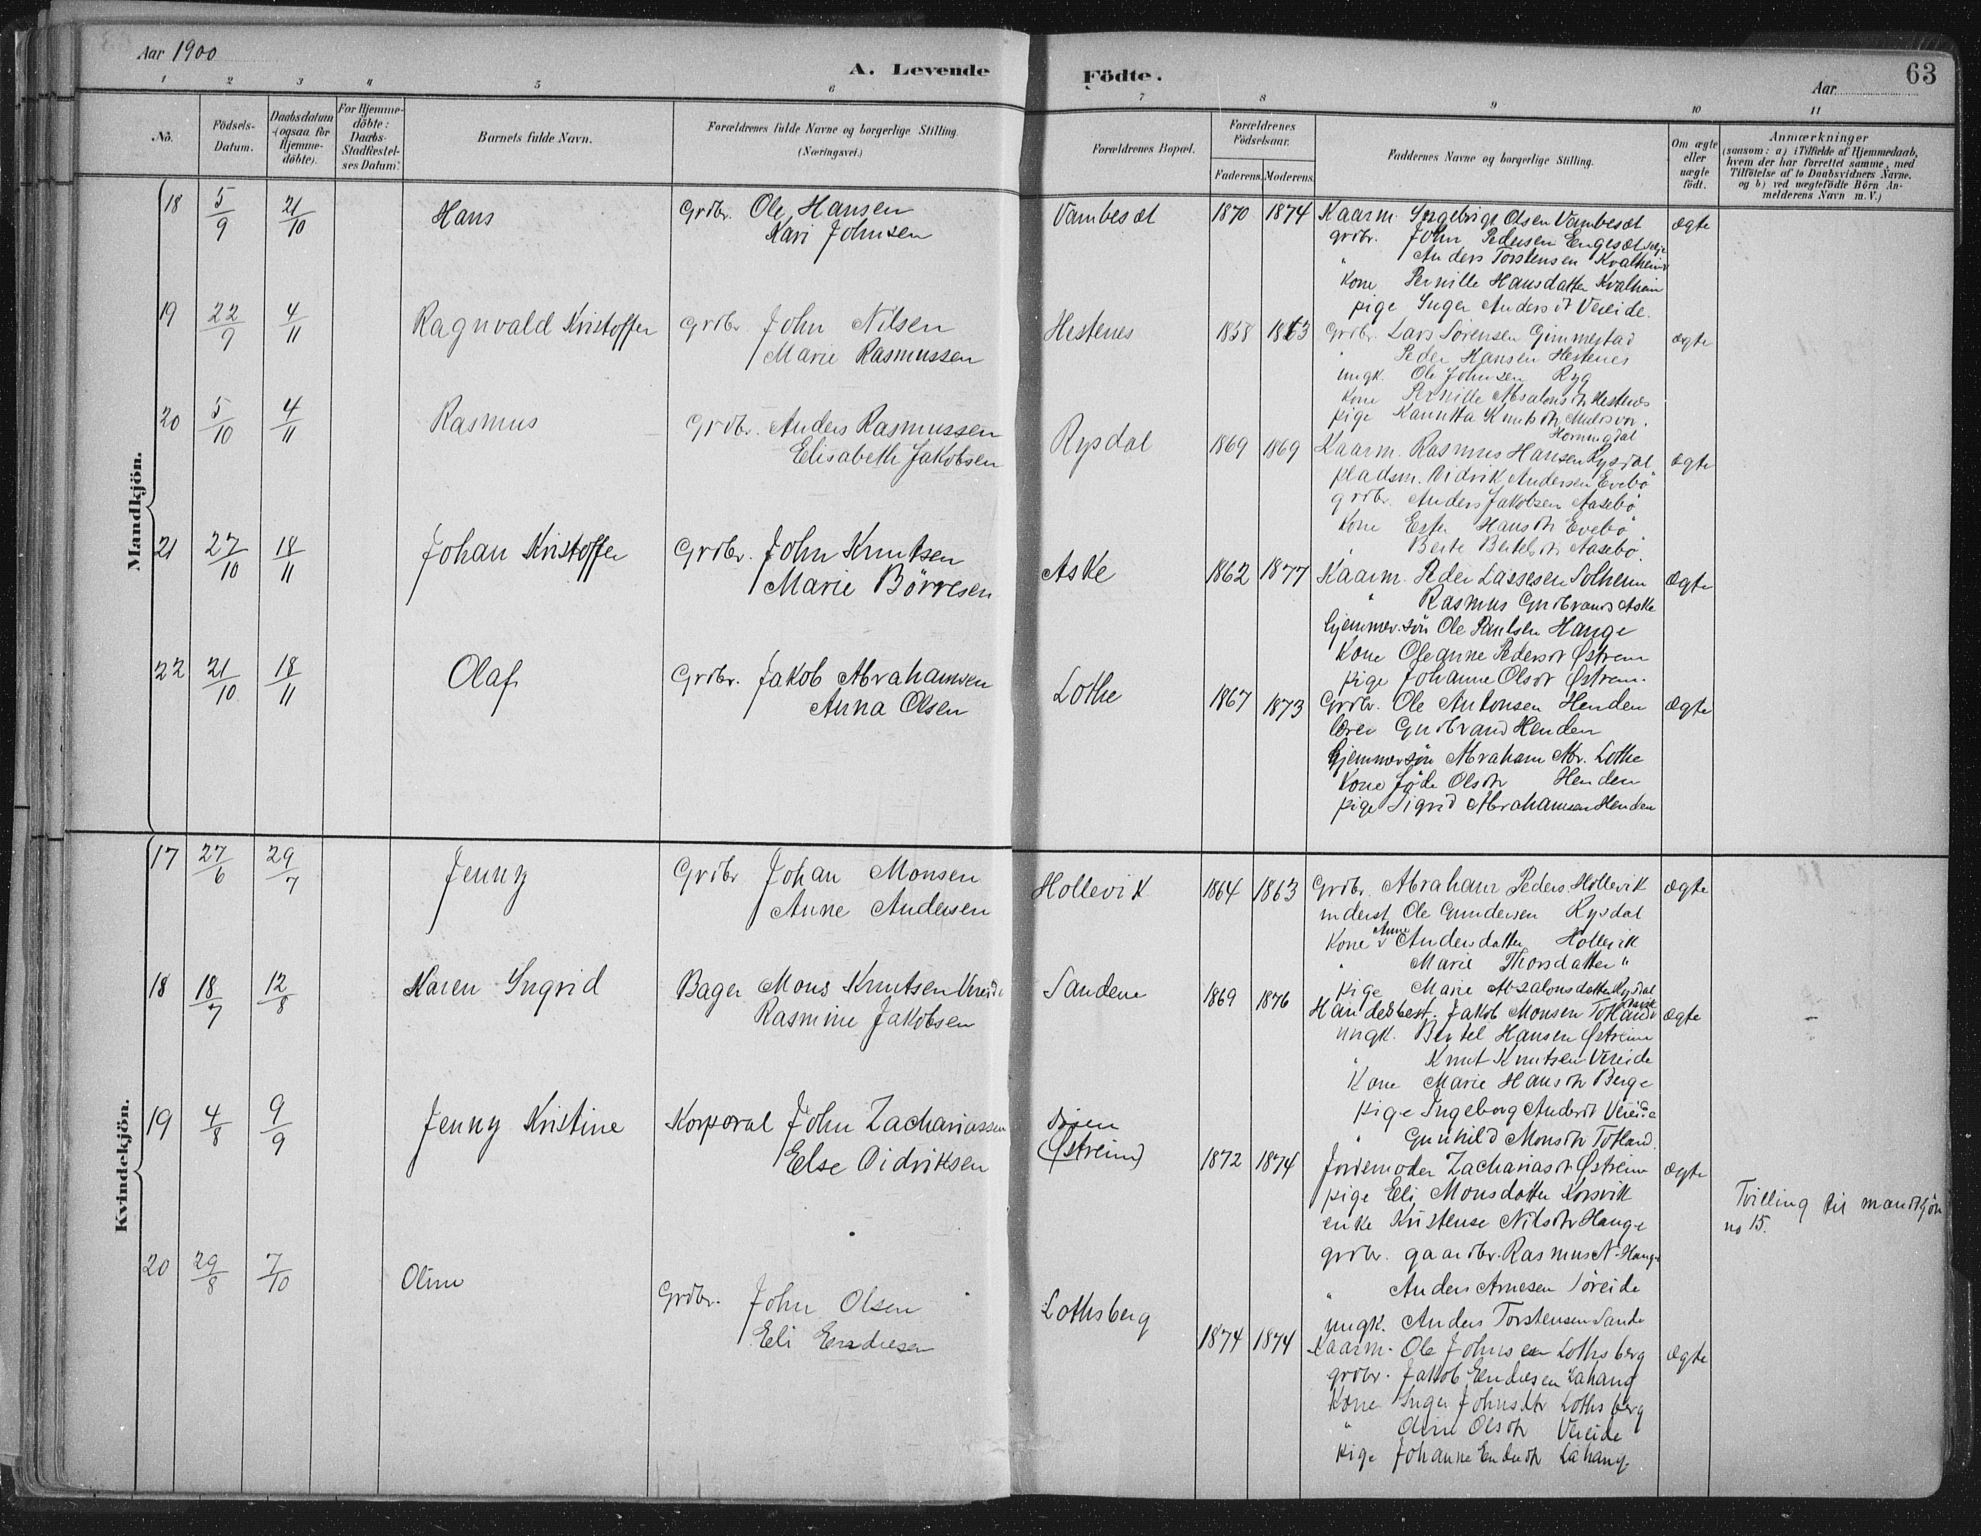 Aar 1900
A. Levende Födte.
Aar
63
1 2 3 4 5 6 7 8 9 10 11
No.
Födsels-Datum.
Daabsdatum (ogsaa for Hjemme-döbte).
For Hjemme-döbte: Daabs-Stadfæstel-ses Datum.
Barnets fulde Navn.
Forældrenes fulde Navne og borgerlige Stilling. (Næringsvei.)
Forældrenes Bopæl.
Forældrenes Födselsaar.
Faderens. Moderens.
Faddernes Navne og borgerlige Stilling.
Om ægte eller uægte födt.
Anmærkninger
(saasom: a) i Tilfælde af Hjemmedaab,
hvem der har forrettet samme, med
Tilföielse af to Daabsvidners Navne,
og b) ved uægtefödte Börn An-
melderens Navn m. V.)
Mandkjön.
18 5/9 21/10 Hans Grdbr. Ole Hansen Vambesæt 1870 1874 Kaarm. Ingebrigt Olsen Vambesæt ægte
Kari Johnsen grdbr. John Pedersen Engesæt
" Anders Torstensen Kvalheim
Kone Pernille Hansdatter Kvalheim
pige Inger Andersdt Vereide.
19 22/9 4/11 Ragnvald Kristoffer Grdbr John Nilsen Hestenes 1858 1863 Grdbr. Lars Sörensen Gimmestad ægte
Marie Rasmussen " Peder Hansen Hestenes
ungk. Ole Johnsen Ryg
Kone Pernille Absalonsdtr Hestenes
pige Knutsdtr
Horningdal
20 5/10 4/11 Rasmus Grdbr. Anders Rasmussen Rysdal 1869 1869 Kaarm. Rasmus Hansen Rysdal ægte
Elisabeth Jakobsen pladsm. Didrik Andersen Evebö
grdbr. Anders Jakobsen Aasebö
Kone Hansdtr Evebö
" Berte Bertelsdtr Aasebö.
21 27/10 18/11 Johan Kristoffer Grdbr. John Knutsen Aske 1862 1877 Kaarm. Peder Lassesen Solheim ægte
Marie Börresen " Rasmus Gudbrands Aske
hjemmev. sön Ole Paulsen Hauge
Kone Oleanne Pedersdt Østrem
pige Johanne Olsdt Østrem.
22 21/10 18/11 Olaf Grdbr. Jakob Abrahamsen Lothe 1867 1873 Grdbr. Ole Antonsen Henden ægte
Anna Olsen Gudbrand Henden
Hjemmev sön Abraham Abr. Lothe
Kone Olsdtr Henden
pige Sigrid Abrahamsen Henden
Kvindekjön.
17 27/6 29/7 Jenny Grdbr Johan Monsen Hollevik 1864 1863 Grdbr. Abraham Peders Hollevik ægte
Anne Andersen inderst Ole Gundersen Rysdal
Kone Anne Andersdatter Hollevik
" Marie Thorsdatter "
pige Marie Absalonsdatter Rysdal
18 18/7 12/8 Karen Ingrid Bager Mons Knutsen Vereide Sandene 1869 1876 Handelsbest. Jakob Monsen Totland ægte
Rasmine Jakobsen ungk. Bertel Hansen Østreim
" Knut Knutsen Vereide
Kone Marie Hansdtr Berge
pige Ingeborg Andersdt Vereide
" Gunhild Monsdtr Totland.
19 4/8 9/9 Jenny Kristine Korporal John Zachariassen (Østreim) 1872 1874 Jordemoder Zachariasdt Østreim ægte
Else Didriksen pige Eli Monsdatter Korsvik
enke Kristense Nilsdtr Hauge
grdbr. gaardbr. Rasmus N. Hauge
" Anders Arnesen Söreide
ungk. Anders Torstensen Sande
Tvilling til mandkjön
no 15.
20 29/8 7/10 Oline Grdbr. John Olsen Lothsberg 1874 1874 Kaarm. Ole Johnsen Lothsberg ægte
Eli Endresen grdbr. Jakob Endresen Lahaug
Kone Inger Johnsdtr Lothsberg
" Oline Olsdtr Vereide
pige Johanne Endredtr Lahaug